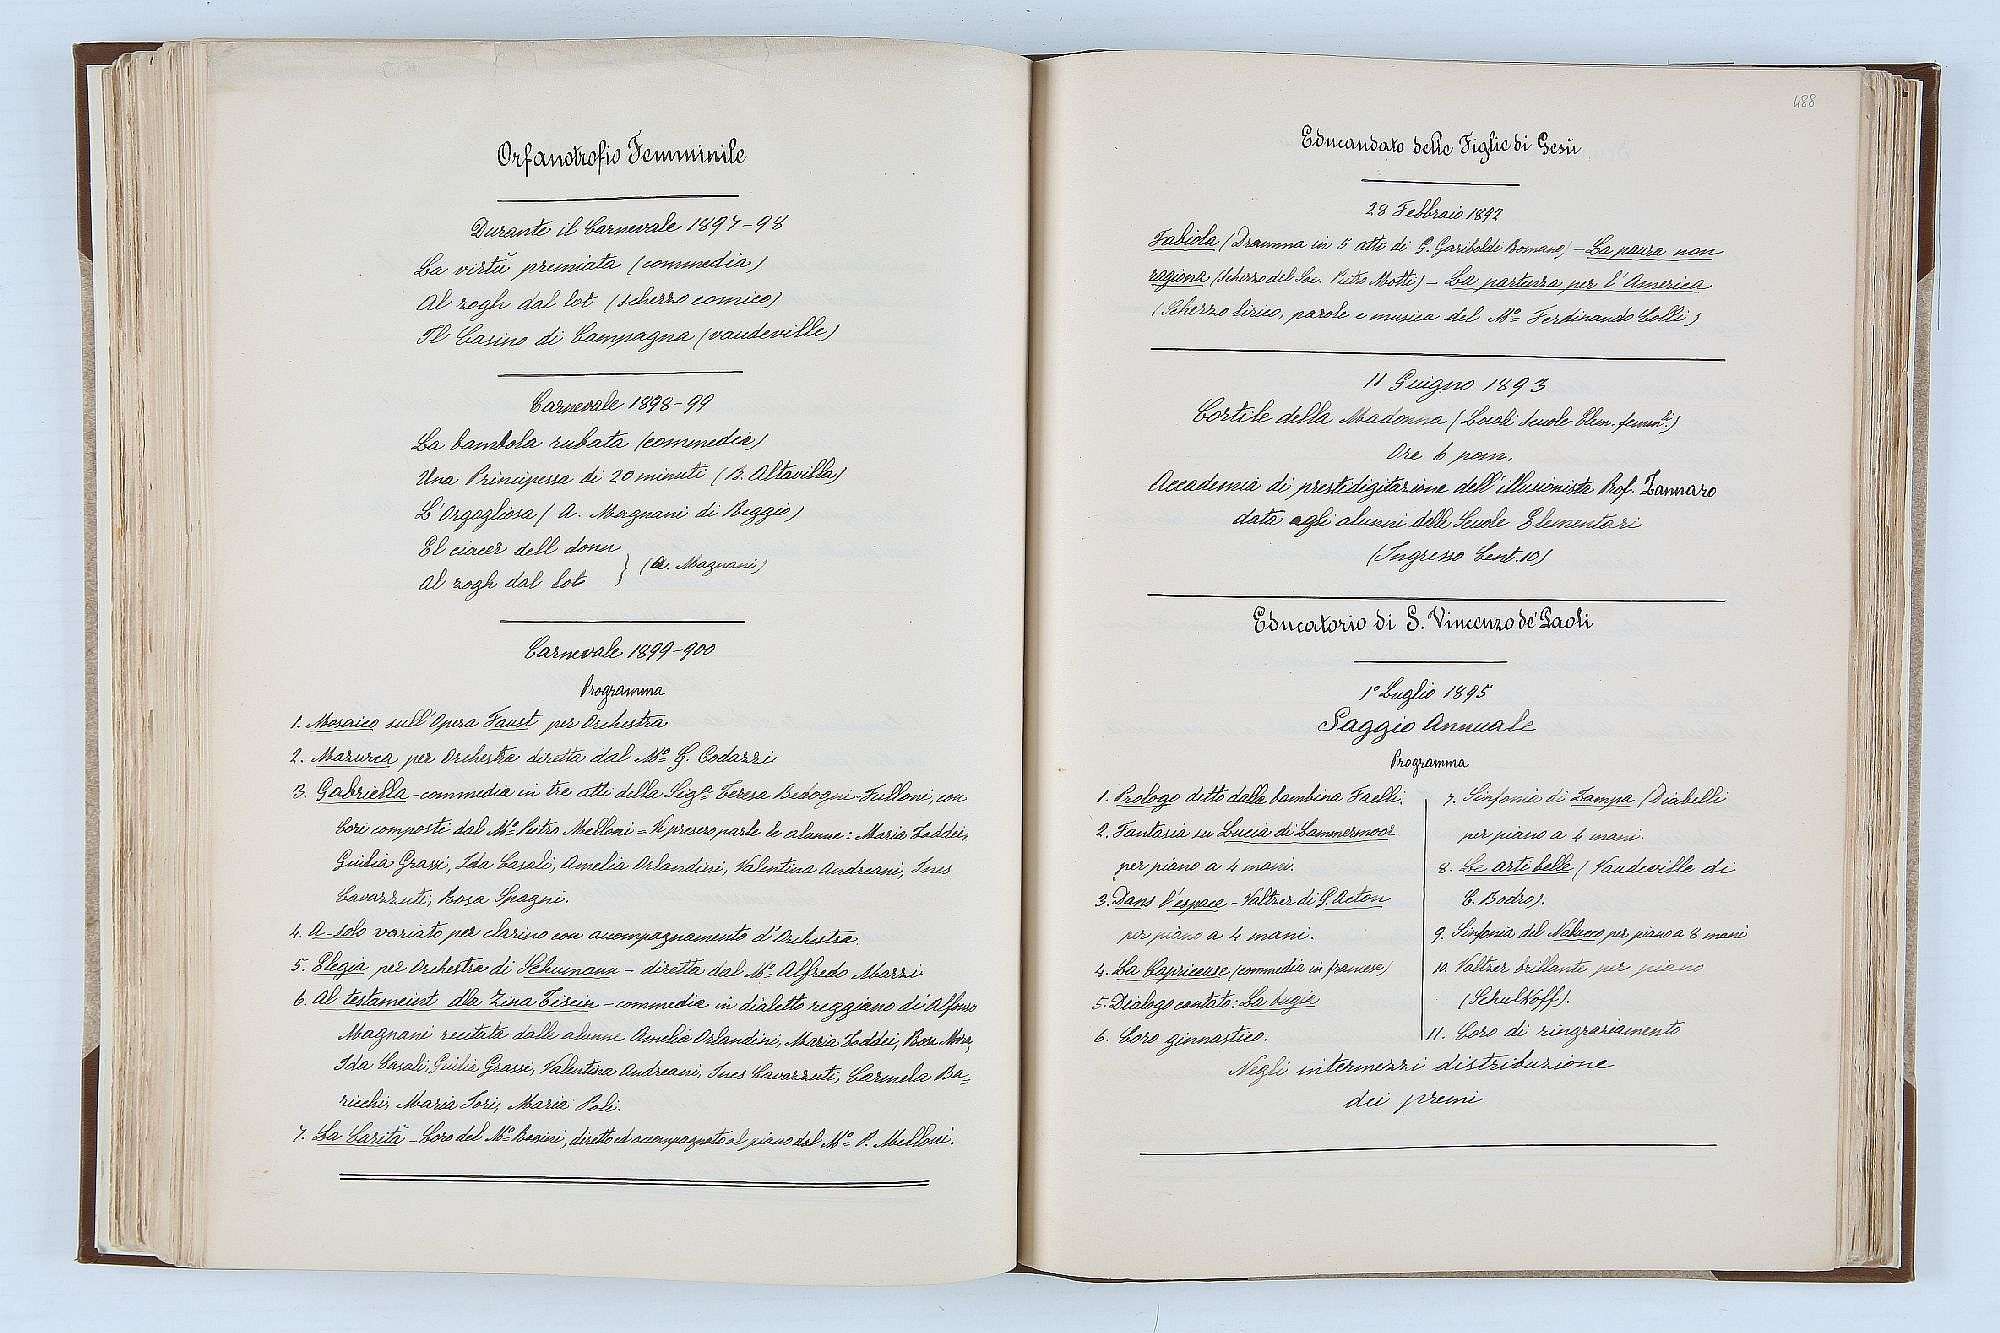 Orfanotrofio Femminile
Durante il Carnevale 1897-98
La virtù premiata (commedia)
Al zogh dal lot (scherzo comico)
Il Casino di Campagna (vaudeville)
Carnevale 1898-99
La bambola rubata (commedia)
Una Principessa di 20 minuti (B. Altavilla)
L'Orgogliosa (A. Magnani di Reggio)
El ciacer dell donn
Al zogh dal lot } (A. Magnani)
Carnevale 1899-900
Programma
1. Mosaico sull'Opera Faust per Orchestra
2. Mazurca per Orchestra diretta dal Mo. G. Codazzi
3. Gabriella - commedia in tre atti della Siga. Teresa Bedogni-Fulloni, con
Cori composti dal Mo. Pietro Melloni = Vi presero parte le alunne: Maria Taddei,
Giulia Grassi, Ida Casali, Amelia Orlandini, Valentina Andreani, Ines
Cavazzuti, Rosa Spagni.
4. A-solo variato per clarino con acompagnamento d'Orchestra
5. Elegia per Orchestra di Schumann - diretta dal Mo. Alfredo Mazzi
6. Al testameint dla Zina Tirein - commedia in dialetto reggiano di Alfonso
Magnani recitata dalle alunne Amelia Orlandini, Maria Taddei, Rosa
Ida Casali, Giulia Grassi, Valentina Andreani, Ines Cavazzuti, Carmela Ba-
ricchi, Maria Tori, Maria Poli.
7. La Carità - Coro del Mo. diretto ed accompagnato al piano dal Mo. P. Melloni.
488
Educandato delle Figlie di Gesù
28 Febbraio 1892
Fabiola (Dramma in 5 atti di G. Gariboldi Romano) - La paura non
ragiona (scherzo del Sac. Pietro Motti) - La partenza per l'America
(Scherzo lirico, parole e musica del Mo. Ferdinando Colli)
11 Giugno 1893
Cortile della Madonna (Locali Scuole Elem. femmli.)
Ore 6 pom.
Accademia di prestidigitazione dell'illusionista Prof. Zannaro
data agli alunni delle Scuole Elementari
(Ingresso Cent. 10)
Educatorio di S. Vincenzo de' Paoli
1° Luglio 1895
Saggio Annuale
Programma
1. Prologo detto dalla bambina Faelli.
2. Fantasia su Lucia di Lammermoor
per piano a 4 mani.
3. Dans l'espace - Valtzer di G. Acton
per piano a 4 mani.
4. La Capricense (commedia in francese)
5. Dialogo cantato: La bugia
6. Coro ginnastico.
7. Sinfonia di Zampa (Diabelli
per piano a 4 mani.
8. Le arti belle (Vaudeville di
E. Bodro).
9. Sinfonia del Nabucco per piano a 8 mani
10. Valtzer brillante per piano
(Schulhoff).
11. Coro di ringraziamento
Negli intermezzi distribuzione
dei premi